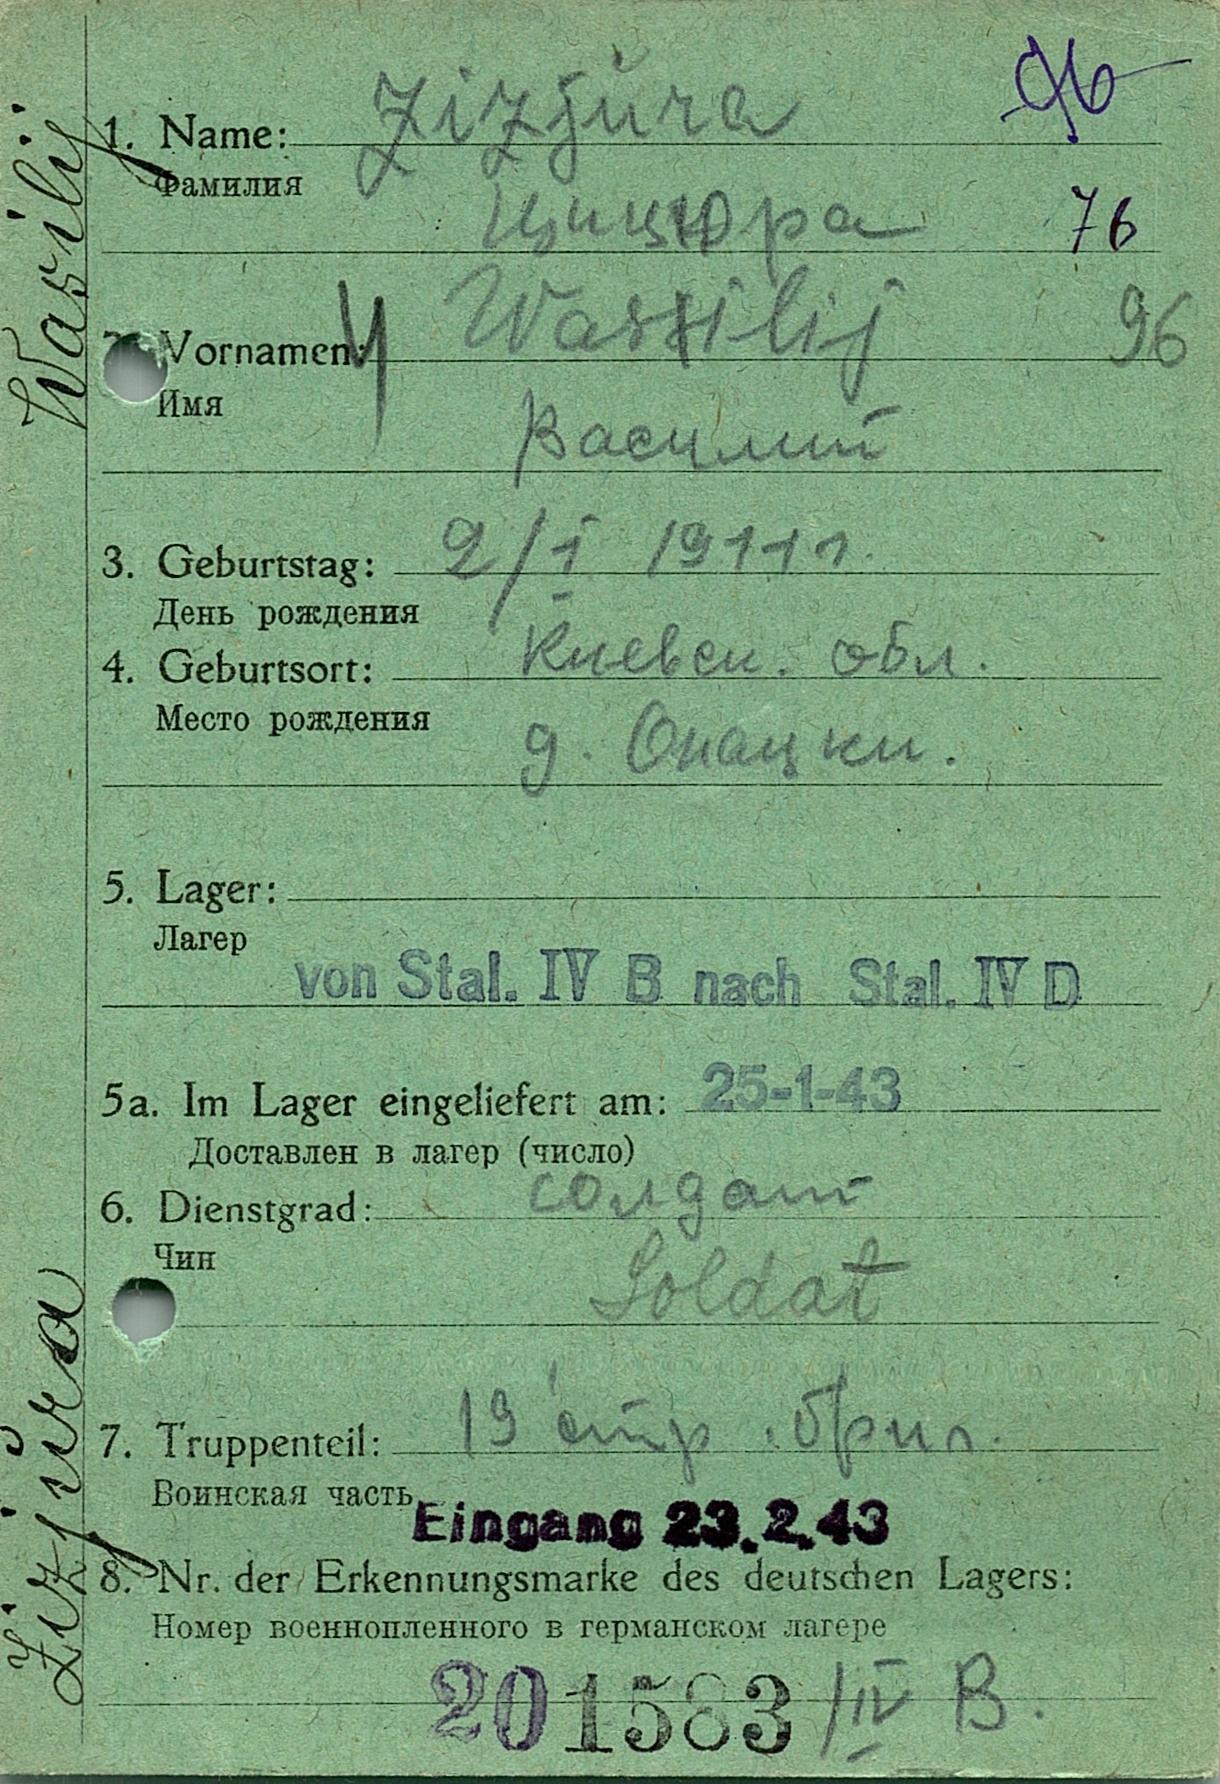 1. Name: Zizjura
Фамилия
Цицюра
76
2. Vornamen: Wassilij 96
Имя
Василий
3. Geburtstag: 2/I 1911 г.
День рождения
4. Geburtsort: Киевск. обл.
Место рождения
д. Опацки.
5. Lager:
Лагер
von Stal. IV B nach Stal. IV D
5a. Im Lager eingeliefert am: 25-1-43
Доставлен в лагер (число)
6. Dienstgrad: солдат
Чин
Soldat
7. Truppenteil: 19 стр. бриг.
Воинская часть
Eingang 23.2.43
8. Nr. der Erkennungsmarke des deutschen Lagers:
Номер военнопленного в германском лагере
201583 /IV B.
Zizjura Wasilij